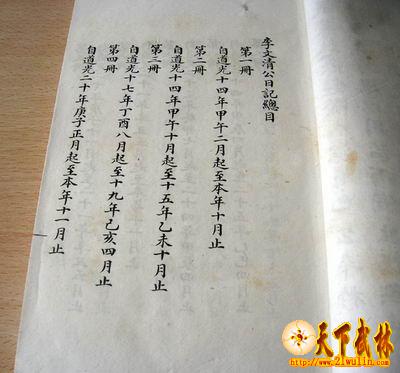 李文清公日記總目
第一冊
自道光十四年甲午二月起至本年十月止
第二冊
自道光十四年甲午十月起至十五年乙未十月止
第三冊
自道光十七年丁酉八月起至十九年己亥四月止
第四冊
自道光二十年庚子正月起至本年十一月止
天下武林
www.21wulin.com